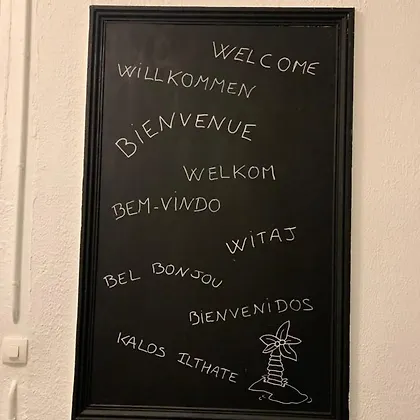 WELCOME
WILLKOMMEN
BIENVENUE
WELKOM
BEM-VINDO
WITAJ
BEL BONJOU
BIENVENIDOS
KALOS ILTHATE